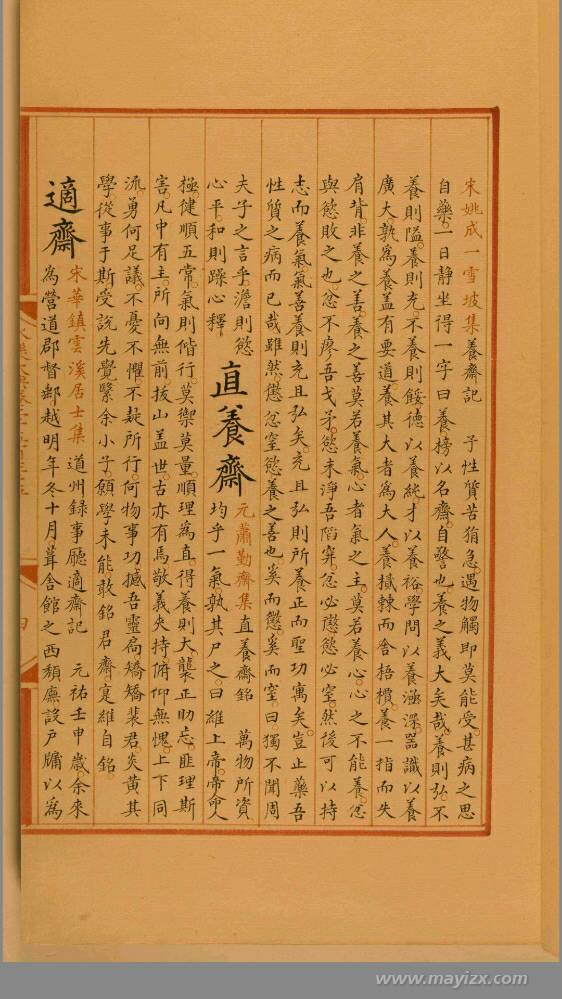 宋姚成一雪坡集養齋記　子性質苦狷急遇物觸即莫能受甚病之思
自藥一日静坐得一字曰養榜以名齋自警也養之義大矣哉養則弘不
養則隘養則充不養則餒德以養純才以養裕學問以養滋深器識以養
廣大孰爲養盖有要道養其大者爲大人養樲棘而舍梧檟養一指而失
肩背非養之善養之善莫若養氣心者氣之主莫若養心心之不能養忿
與慾敗之也忿不廖吾戈矛慾未淨吾陷穽忿必懲慾必窒然後可以持
志而養氣氣善養則充且弘矣充且弘則所養正而聖功寓矣豈止藥吾
性質之病而已哉雖然懲忿窒慾養之善也奚而懲奚而窒曰獨不聞周
夫子之言乎澹則慾
心平和則躁心釋
直養齋
元蕭勤齋集直養齋銘　萬物所資
均乎一氣孰其尸之曰維上帝帝命人
極健順五常氣則偕行莫禦莫量順理為直得養則大襲正助忘匪理斯
害凡中有主所向無前拔山盖世古亦有焉敬義夾持俯仰無愧上下同
流勇何足議不憂不懼不歉所行何物事功撼吾靈扃矯矯裴君炎黄其
學從事于斯受説先覺緊余小子願學未能敢銘君齋寔維自銘
適齋
宋華鎮雲溪居士集　道州録事廳適齋記　元祐壬申歲余來
為營道郡督郵越明年冬十月葺舍館之西頽廡設戶牖以為
www.mayizx.com